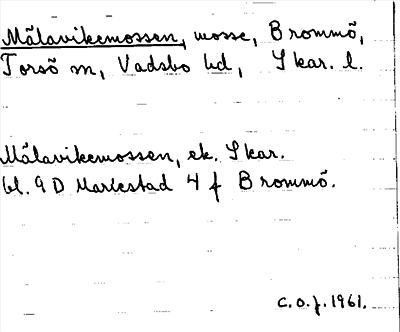 Målavikemossen, mosse, Brommö,
Torsö sn, Vadsbo hd, Skar. l.
Målavikemossen, ek. Skar.
bl. 9 D Mariestad 4 f Brommö.
C.O.J. 1961.